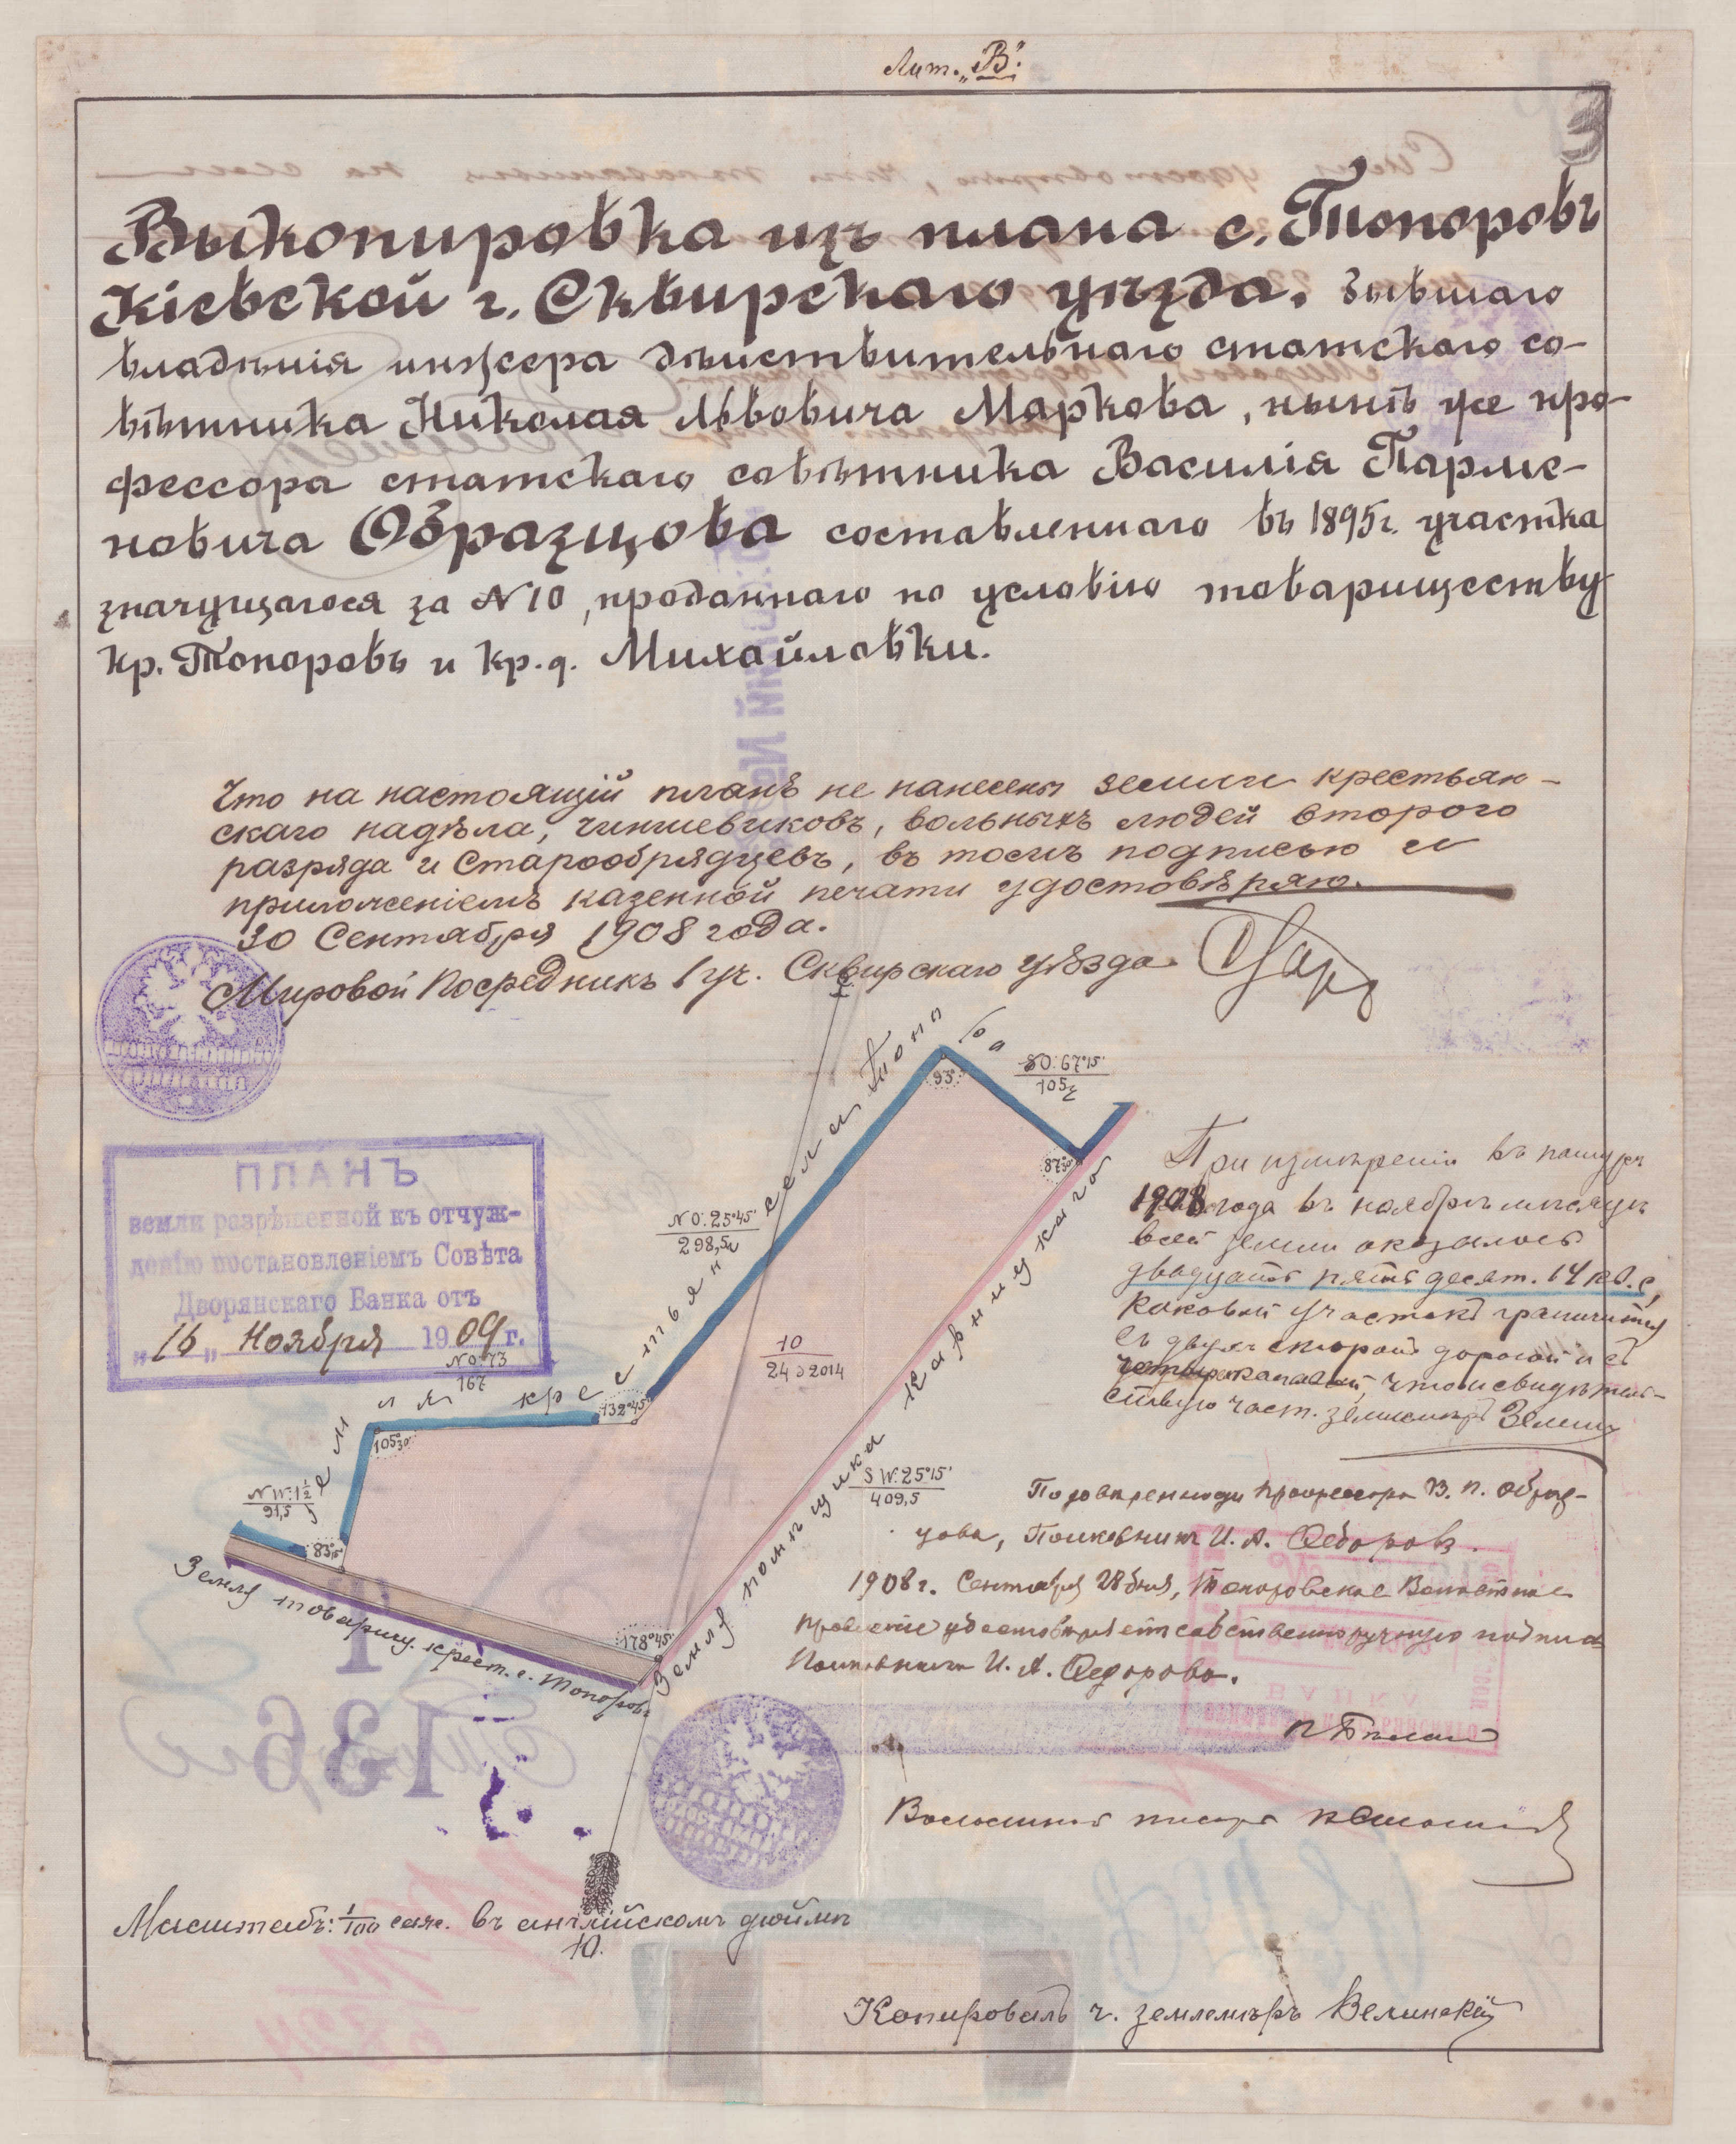 Лит. „В".
3
Выкопировка изъ плана с. Топоровъ
Кіевской г. Сквирскаго уѣзда, бывшаго
владѣнія инжсера дѣйствительнаго статскаго со-
вѣтника Николая Львовича Маркова, нынѣ же про-
фессора статскаго совѣтника Василія Парме-
новича Образцова составленнаго въ 1895 г. участка
значущагося за N 10, проданнаго по условію товариществу
кр. Топоровъ и кр. д. Михайловки.
Что на настоящій планъ не нанесены земли крестьян-
скаго надѣла, чиншевиковъ, вольныхъ людей второго
разряда и Старообрядцевъ, въ томъ подписью и
приложеніемъ казенной печати удостовѣряю.
30 Сентября 1908 года.
Мировой Посредникъ 1 уч. Сквирскаго уѣзда
ПЛАНЪ
земли разрѣшенной къ отчуж-
денію постановленіемъ Совѣта
Дворянскаго Банка отъ
„16" Ноября 1909 г.
Земля крестьян села Топоро ва
SO. 67°15'
105
93°
87°30'
NO. 25°45'
298,5
10
24 д 2014
NO. 73
167
132°45'
105°30'
NW. 1 1/2
91,5
83°15'
SW. 25°15'
409,5
178°45'
Земля помѣщика Карпицкаго
Земля товарищ. крест. с. Топоровъ
При измѣреніи въ натурѣ
1908 года въ ноябрѣ мѣсяцѣ
всей земли оказалось
двадцать пять десят. 14 кв. с,
каковый участокъ граничитъ
съ двухъ сторонъ дорогой и съ
что и свидѣтель-
ствую част. землемѣръ
По довѣренности Профессора В. П. Образ-
цова, Полковникъ И. А. Ѳедоровъ.
1908 г. Сентября 28 дня, Топоровское Волостное
Правленіе удостовѣряетъ собственноручную подпись
Полковника И. А. Ѳедорова.
Волостной писарь
Масштабъ: 1/100 саж. въ англійскомъ дюймѣ
Ю.
Копировалъ ч. землемѣръ Велинскій
136